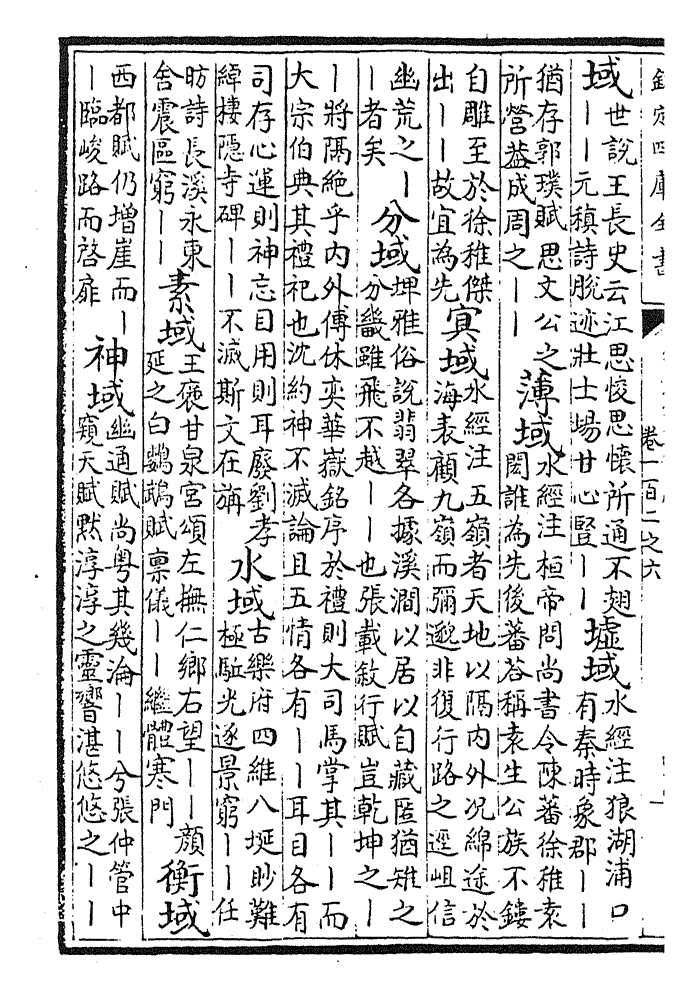 欽定四庫全書
卷一百二之六
域
世說王長史云江思悛思懷所通不翅
｜｜元稹詩脫迹壯士場甘心豎｜｜
墟域
水經注狼湖浦口
有秦時象郡｜｜
猶存郭璞賦思文公之
所營葢成周之｜｜
薄域
水經注桓帝問尚書令陳蕃徐稚袁
閎誰為先後蕃答稱袁生公族不鏤
自雕至於徐稚傑
出｜｜故宜為先
冥域
水經注五嶺者天地以隔内外况綿途於
海表顧九嶺而彌邈非復行路之逕岨信
幽荒之｜
｜者矣
分域
埤雅俗說翡翠各據溪澗以居以自藏匿猶雉之
分畿雖飛不越｜｜也張載敘行賦豈乾坤之｜
｜將隔絕乎内外傅休奕華嶽銘序於禮則大司馬掌其｜｜而
大宗伯典其禮祀也沈約神不滅論且五情各有｜｜耳目各有
司存心運則神忘目用則耳廢劉孝
綽棲隱寺碑｜｜不滅斯文在旃
水域
古樂府四維八埏眇難
極駈光逐景窮｜｜任
昉詩長溪永東
舍震區窮｜｜
素域
王褒甘泉宮頌左撫仁鄉右望｜｜顔
延之白鸚鵡賦禀儀｜｜繼體寒門
衡域
西都賦仍增崖而｜
｜臨峻路而啓扉
神域
幽通賦尚粤其幾淪｜｜兮張仲管中
窺天賦黙淳淳之靈響湛悠悠之｜｜